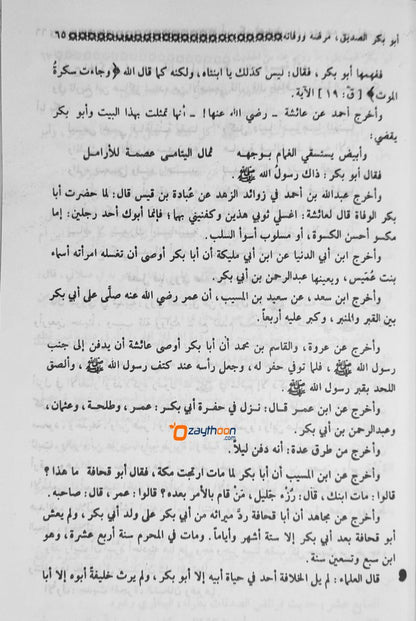 أبو بكر الصديق، مرضه ووفاته ٦٥
ففهمها أبو بكر، فقال: ليس كذلك يا ابنتاه، ولكنه كما قال الله ﴿وجاءت سكرة
الموت﴾ [ق: ١٩] الآية.
وأخرج أحمد عن عائشة - رضي الله عنها! - أنها تمثلت بهذا البيت وأبو بكر
يقضي:
وأبيض يستسقى الغمام بوجهه ثمال اليتامى عصمة للأرامل
فقال أبو بكر: ذاك رسول الله ﷺ.
وأخرج عبدالله بن أحمد في زوائد الزهد عن عبادة بن قيس قال: لما حضرت أبا
بكر الوفاة قال لعائشة: اغسلي ثوبي هذين وكفنيني بهما؛ فإنما أبوك أحد رجلين: إما
مكسو أحسن الكسوة، أو مسلوب أسوأ السلب.
وأخرج ابن أبي الدنيا عن ابن أبي مليكة أن أبا بكر أوصى أن تغسله امرأته أسماء
بنت عُمَيْس، ويعينها عبدالرحمن بن أبي بكر.
وأخرج ابن سعد، عن سعيد بن المسيب، أن عمر رضي الله عنه صلَّى على أبي بكر
بين القبر والمنبر، وكبر عليه أربعاً.
وأخرج عن عروة، والقاسم بن محمد أن أبا بكر أوصى عائشة أن يدفن إلى جنب
رسول الله ﷺ، فلما توفي حفر له، وجعل رأسه عند كتف رسول الله ﷺ، وألصق
اللحد بقبر رسول الله ﷺ.
وأخرج عن ابن عمر قال: نزل في حفرة أبي بكر: عمر، وطلحة، وعثمان،
وعبدالرحمن بن أبي بكر.
Ozaythoon.com
وأخرج من طرق عدة: أنه دفن ليلاً.
وأخرج عن ابن المسيب أن أبا بكر لما مات ارتجت مكة، فقال أبو قحافة ما هذا؟
قالوا: مات ابنك، قال: رُزْء جَليل، مَنْ قام بالأمر بعده؟ قالوا: عمر، قال: صاحبه.
وأخرج عن مجاهد أن أبا قحافة ردَّ ميراثه من أبي بكر على ولد أبي بكر، ولم يعش
أبو قحافة بعد أبي بكر إلا ستة أشهر وأياماً. ومات في المحرم سنة أربع عشرة، وهو
ابن سبع وتسعين سنة.
قال العلماء: لم يل الخلافة أحد في حياة أبيه إلا أبو بكر، ولم يرث خليفةً أبوه إلا أبا